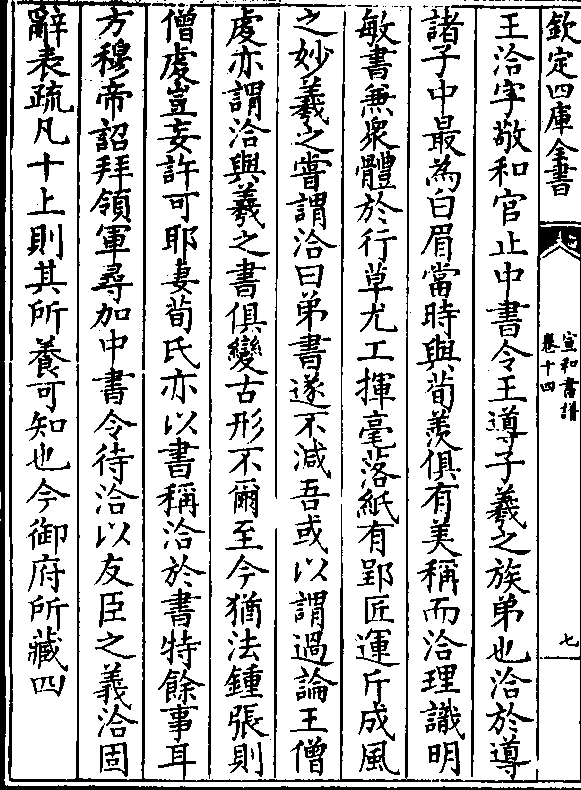 欽定四庫全書
宣和書譜
卷十四
七
王洽字敬和官止中書令王導子羲之族弟也洽於導
諸子中最為白眉當時與荀羨俱有美稱而洽理識明
敏書兼衆體於行草尤工揮毫落紙有郢匠運斤成風
之妙羲之嘗謂洽曰弟書遂不減吾或以謂過論王僧
虔亦謂洽與羲之書俱變古形不爾至今猶法鍾張則
僧虔豈妄許可耶妻荀氏亦以書稱洽於書特餘事耳
方穆帝詔拜領軍尋加中書令待洽以友臣之義洽固
辭表疏凡十上則其所養可知也今御府所藏四